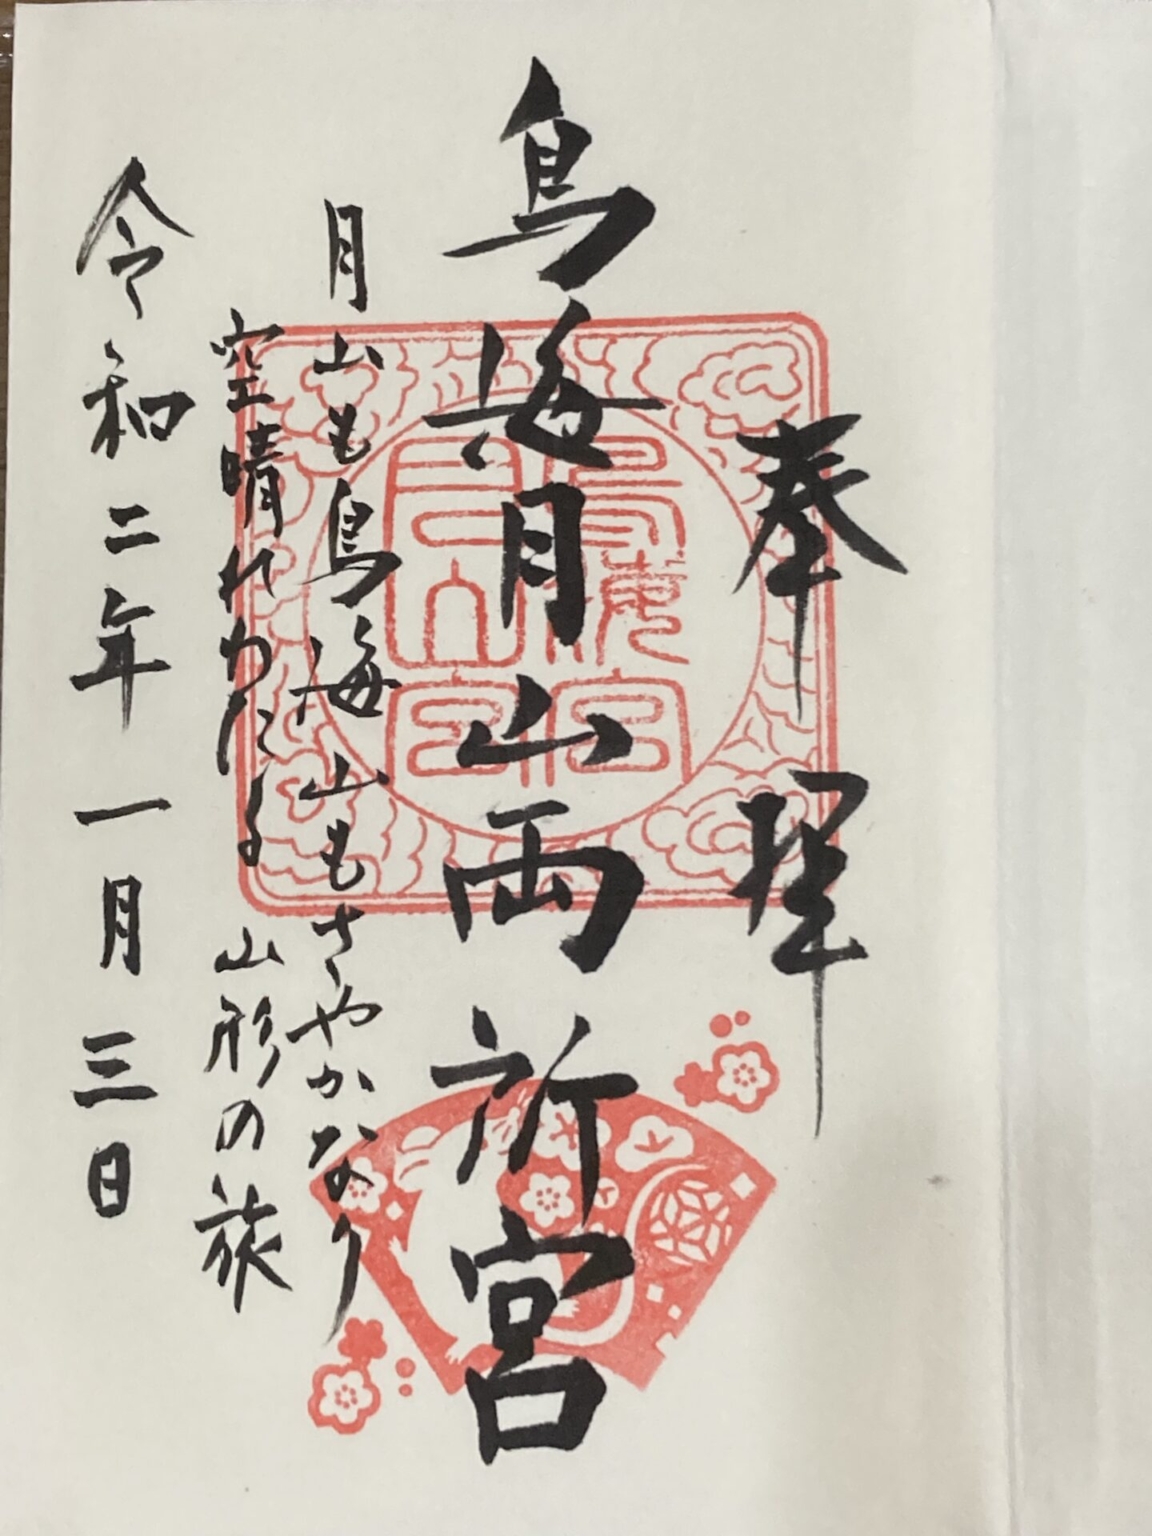 奉拝
鳥海月山両所宮
月山も鳥海山もさやかなり
空晴れわたる 山形の旅
令和二年一月三日